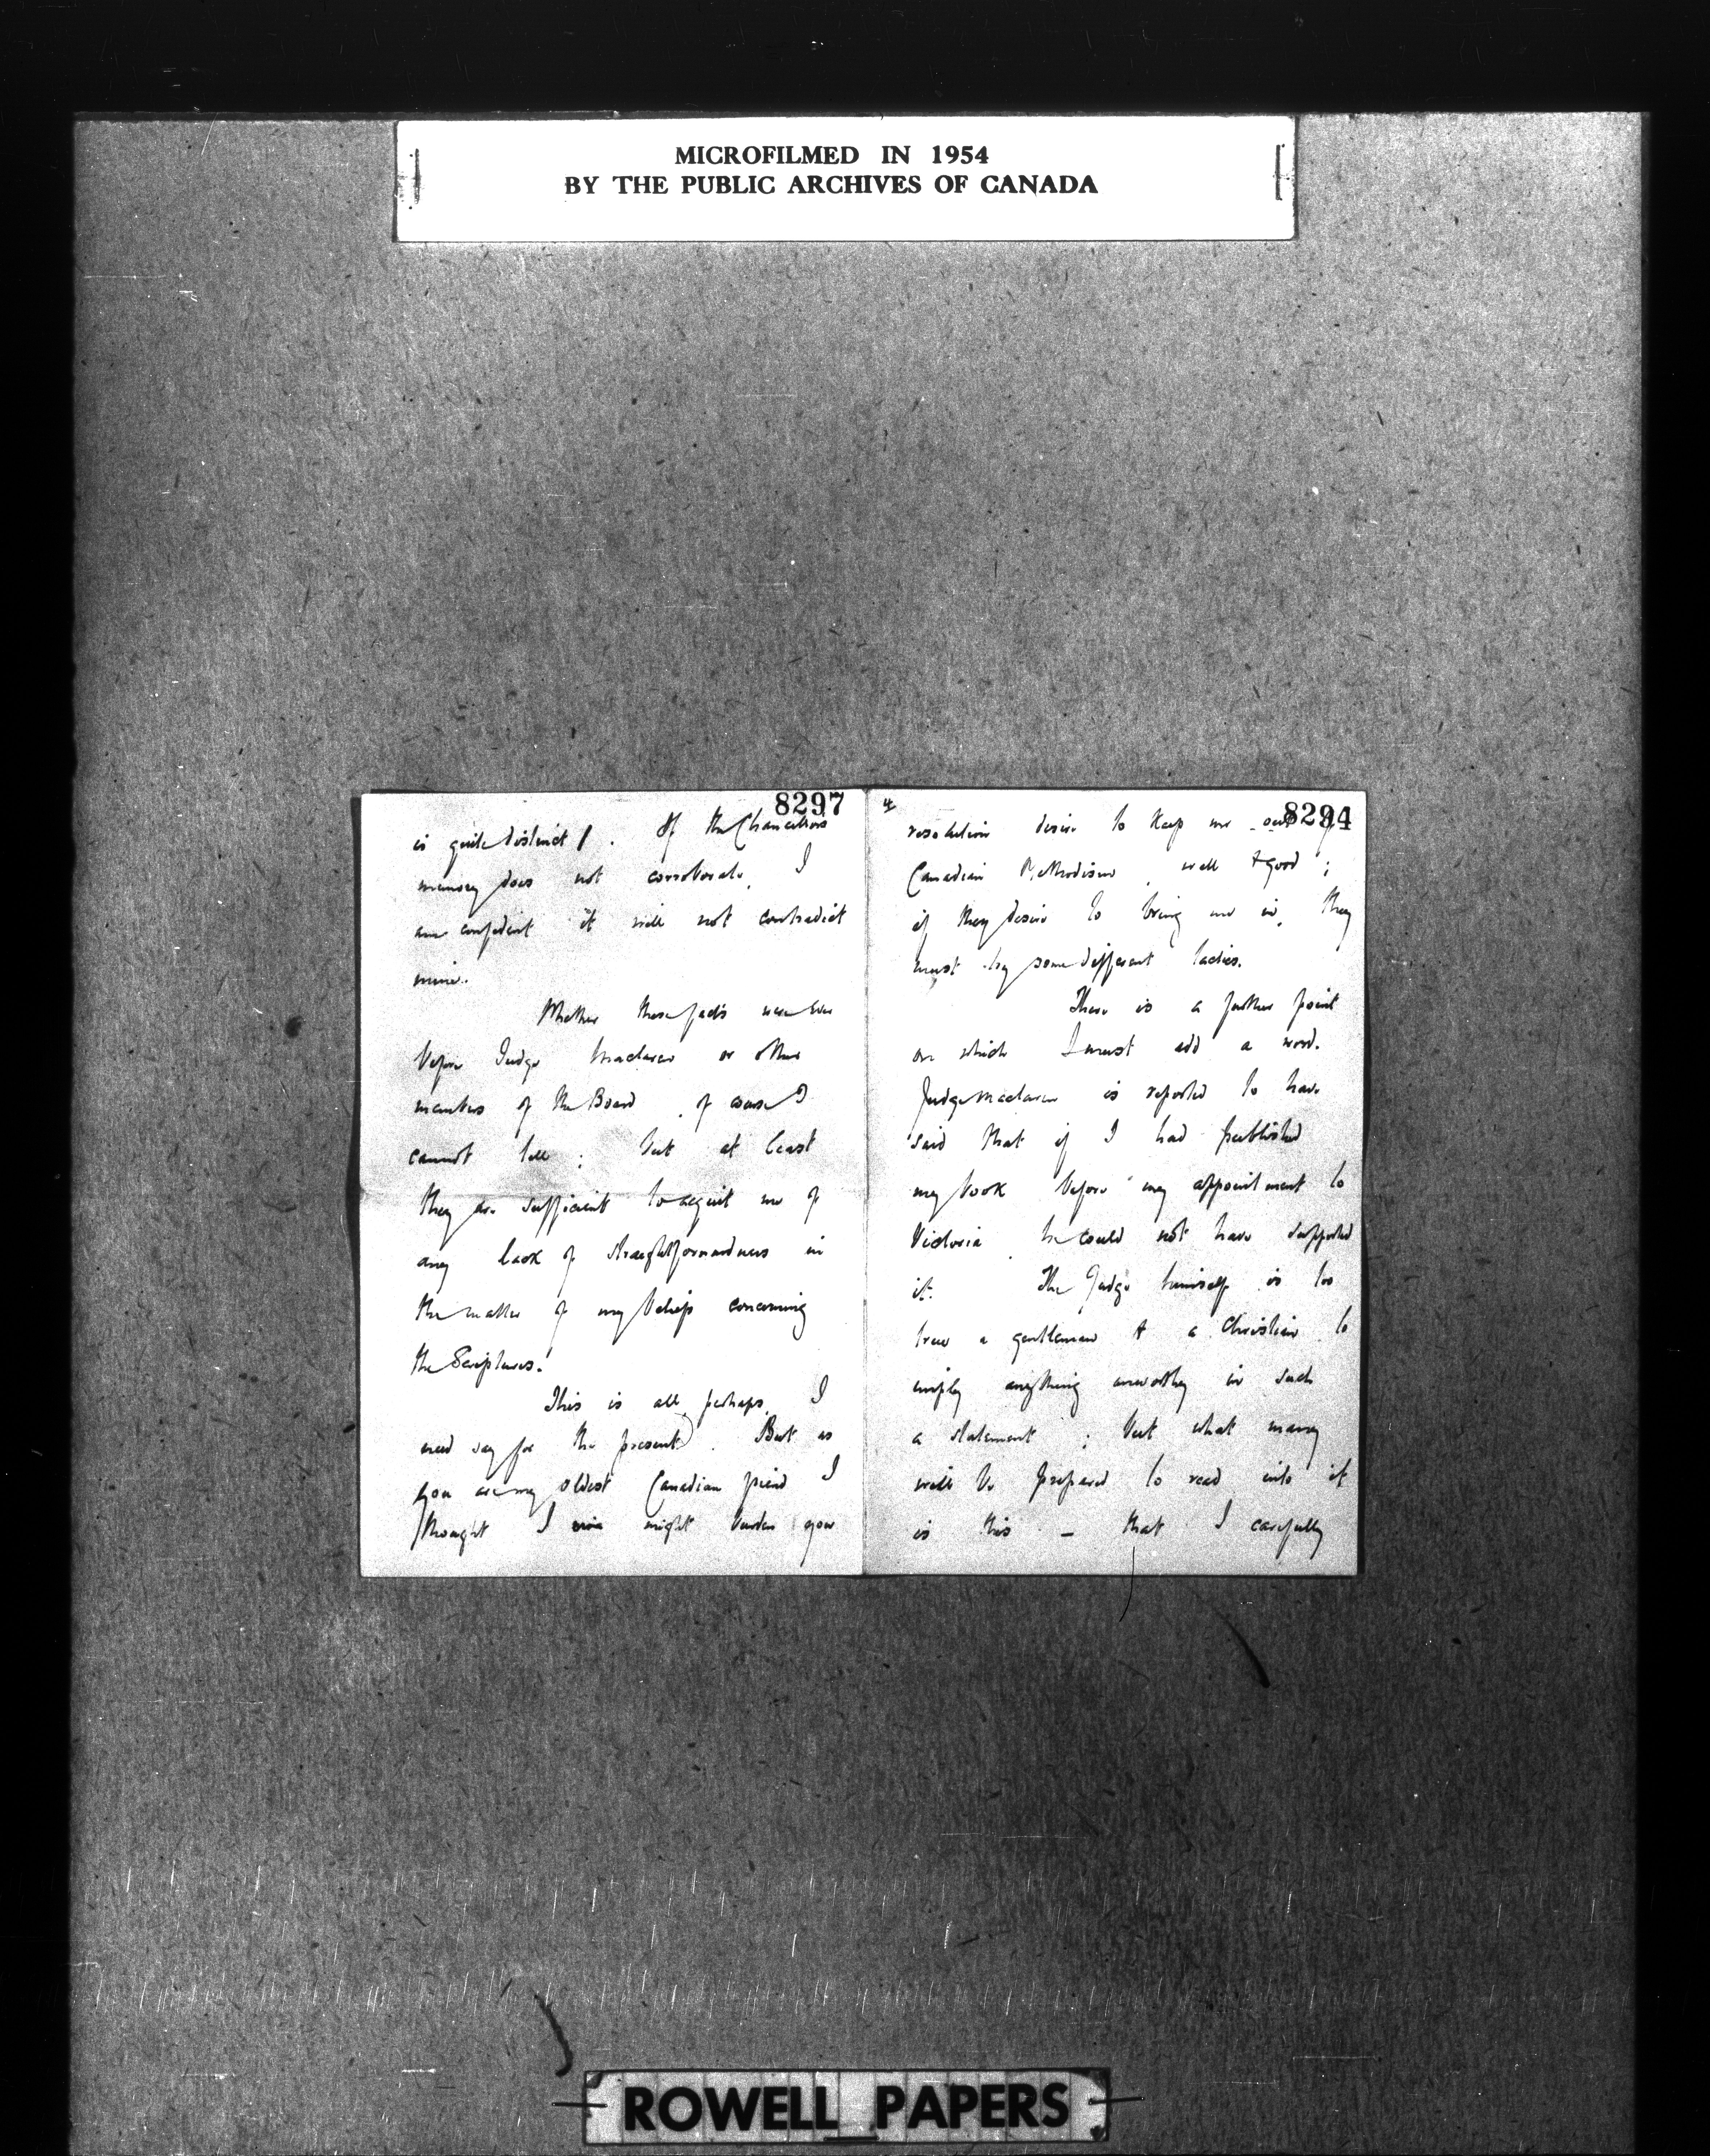 MICROFILMED IN 1954
BY THE PUBLIC ARCHIVES OF CANADA
8297
is quite distinct. If the Chancellor's
memory does not corroborate, I
am confident it will not contradict
mine.
Whether these facts were ever
before Judge Maclaren or other
members of the Board, of course I
cannot tell; but at least
they are sufficient to acquit me of
any lack of straightforwardness in
the matter of my beliefs concerning
the Scriptures.
This is all, perhaps, I
need say for the present. But as
you are my oldest Canadian friend I
thought I might burden you
4
8294
resolution desire to keep me out of
Canadian Methodism, well & good;
if they desire to bring me in, they
must try some different tactics.
There is a further point
on which I must add a word.
Judge Maclaren is reported to have
said that if I had published
my book before my appointment to
Victoria, he could not have supported
it. The Judge himself is too
true a gentleman & a Christian to
imply anything unworthy in such
a statement; but what many
will be prepared to read into it
is this – that I carefully
ROWELL PAPERS